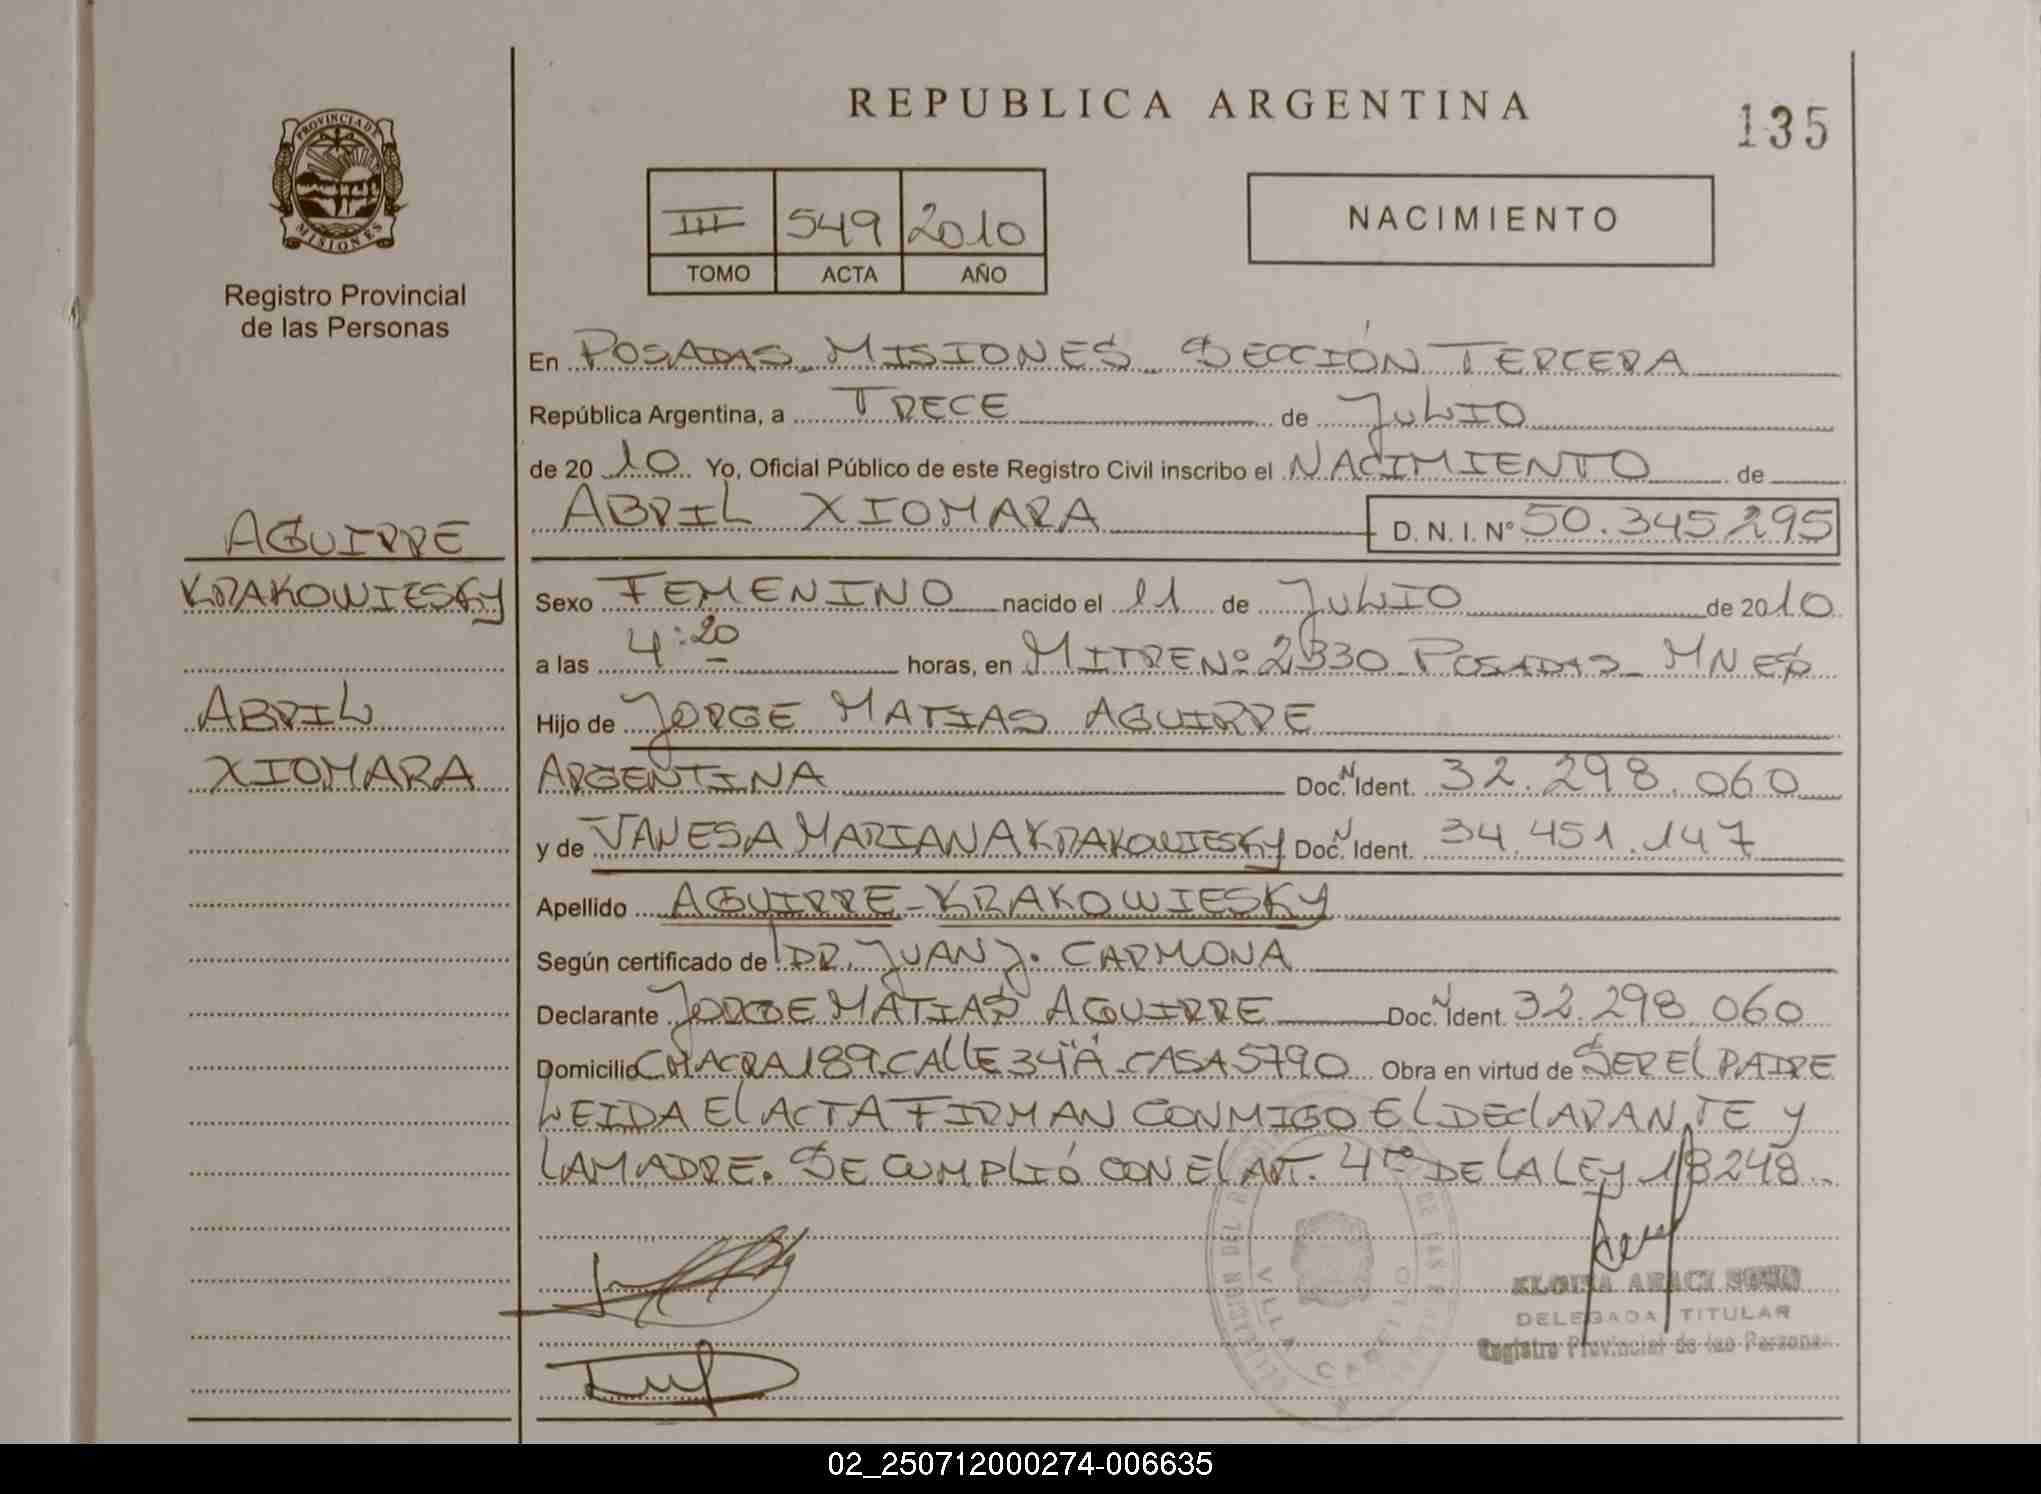 REPUBLICA ARGENTINA
135
PROVINCIA DE
MISIONES
Registro Provincial
de las Personas
III 549 2010
TOMO ACTA AÑO
NACIMIENTO
En POSADAS - MISIONES - SECCIÓN TERCERA
República Argentina, a TRECE de JULIO
de 20 10 Yo, Oficial Público de este Registro Civil inscribo el NACIMIENTO de
ABRIL XIOMARA D. N. I. Nº 50.345.295
AGUIRRE
KRAKOWIESKY
ABRIL
XIOMARA
Sexo FEMENINO nacido el 11 de JULIO de 2010
a las 4:20 horas, en MITRE Nº 2330 POSADAS - MNES
Hijo de JORGE MATIAS AGUIRRE
ARGENTINA Doc. N Ident. 32.298.060
y de VANESA MARIANA KRAKOWIESKY Doc. N Ident. 34.451.147
Apellido AGUIRRE - KRAKOWIESKY
Según certificado de DR. JUAN J. CARMONA
Declarante JORGE MATIAS AGUIRRE Doc. N Ident. 32.298.060
Domicilio CHACRA 189. CALLE 34"A". CASA 5790 Obra en virtud de SER El PADRE
LEIDA El ACTA FIRMAN CONMIGO El DEClARANTE y
LA MADRE. SE CUMPLIÓ CON El ART. 4to DE LA LEy 18248..
DEL
VILLA CABELLO
DELEGADA TITULAR
Registro Provincial de las Personas
02_250712000274-006635